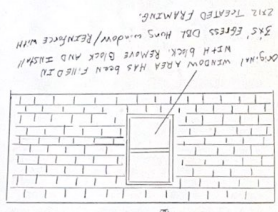 ORIGINAL WINDOW AREA HAS BEEN FILLED IN
WITH BLOCK. REMOVE BLOCK AND INSTALL
3x5' EGRESS DBL HUNG WINDOW/REINFORCE WITH
2x12 TREATED FRAMING.